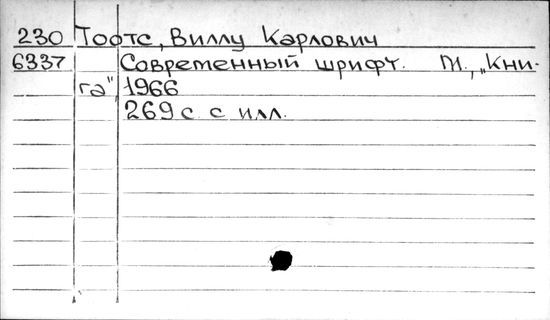 230 Тоотс, Виллу Карлович
6337 Современный шрифт. М., „Кни-
га", 1966
269 с с илл.